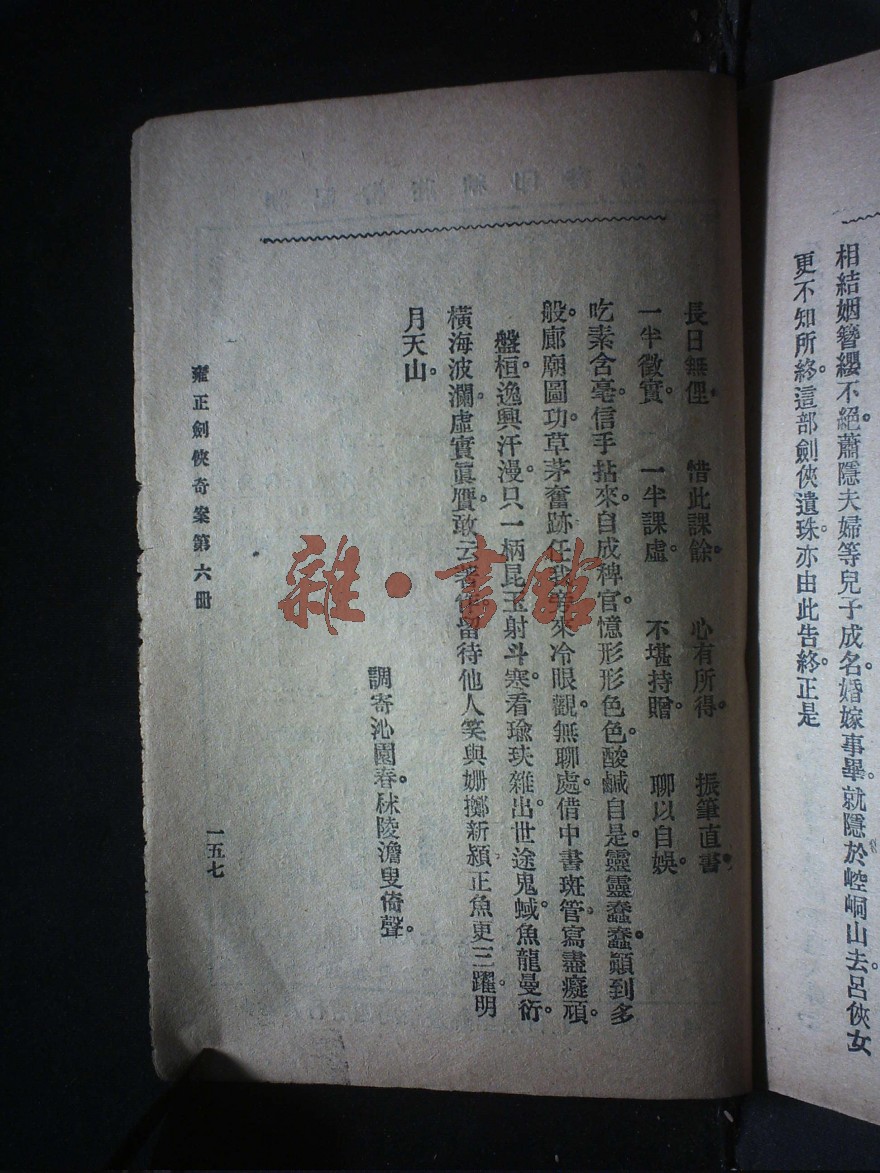 相結姻簪纓不絕。蕭隱夫婦等兒子成名。婚嫁事畢。就隱於崆峒山去。呂俠女
更不知所終。這部劍俠遺珠。亦由此告終。正是
長日無俚。 惜此課餘。 心有所得。 振筆直書。
一半徵實。 一半課虛。 不堪持贈。 聊以自娛。
吃素含毫。信手拈來。自成稗官。憶形形色色。酸鹹自是。靈靈蠢蠢。顛到多
般。廊廟圖功。草茅奮跡。任我旁來冷眼觀。無聊處。借中書斑管。寫盡癡頑。
盤桓逸興汗漫。只一柄昆玉射斗寒。看瑜玞雜出。世途鬼蜮。魚龍曼衍。
橫海波瀾。虛實眞贋。敢云著作。留待他人笑與姍。擲新潁。正魚更三躍。明
月天山。
調寄沁園春。秫陵澹叟倚聲。
雍正劍俠奇案第六冊
一五七
雜·書館